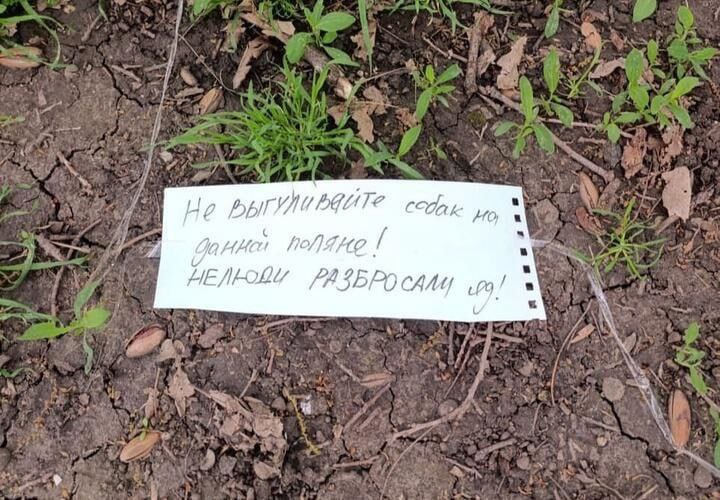 Не ВЫГУЛИВайте собак на
данной поляне!
НЕЛЮДИ РАЗБРОСАЛИ яд!